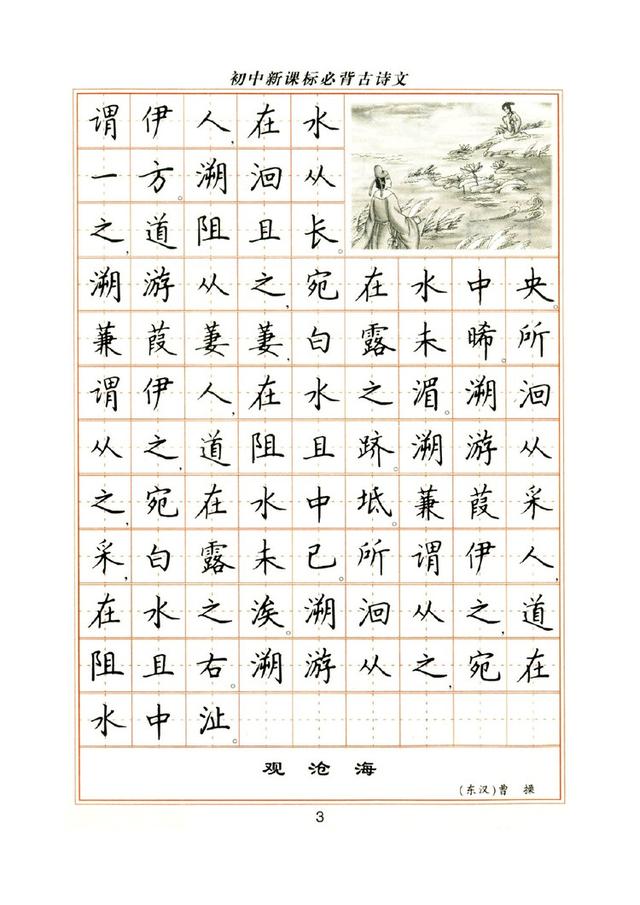 初中新课标必背古诗文
谓伊人,在水
一方。溯洄从
之,道阻且长。
溯游从之,宛在水中央。
蒹葭萋萋,白露未晞。所
谓伊人,在水之湄。溯洄
从之,道阻且跻。溯游从
之,宛在水中坻。蒹葭采
采,白露未已。所谓伊人,
在水之涘。溯洄从之,道
阻且右。溯游从之,宛在
水中沚。
观沧海
(东汉)曹操
3